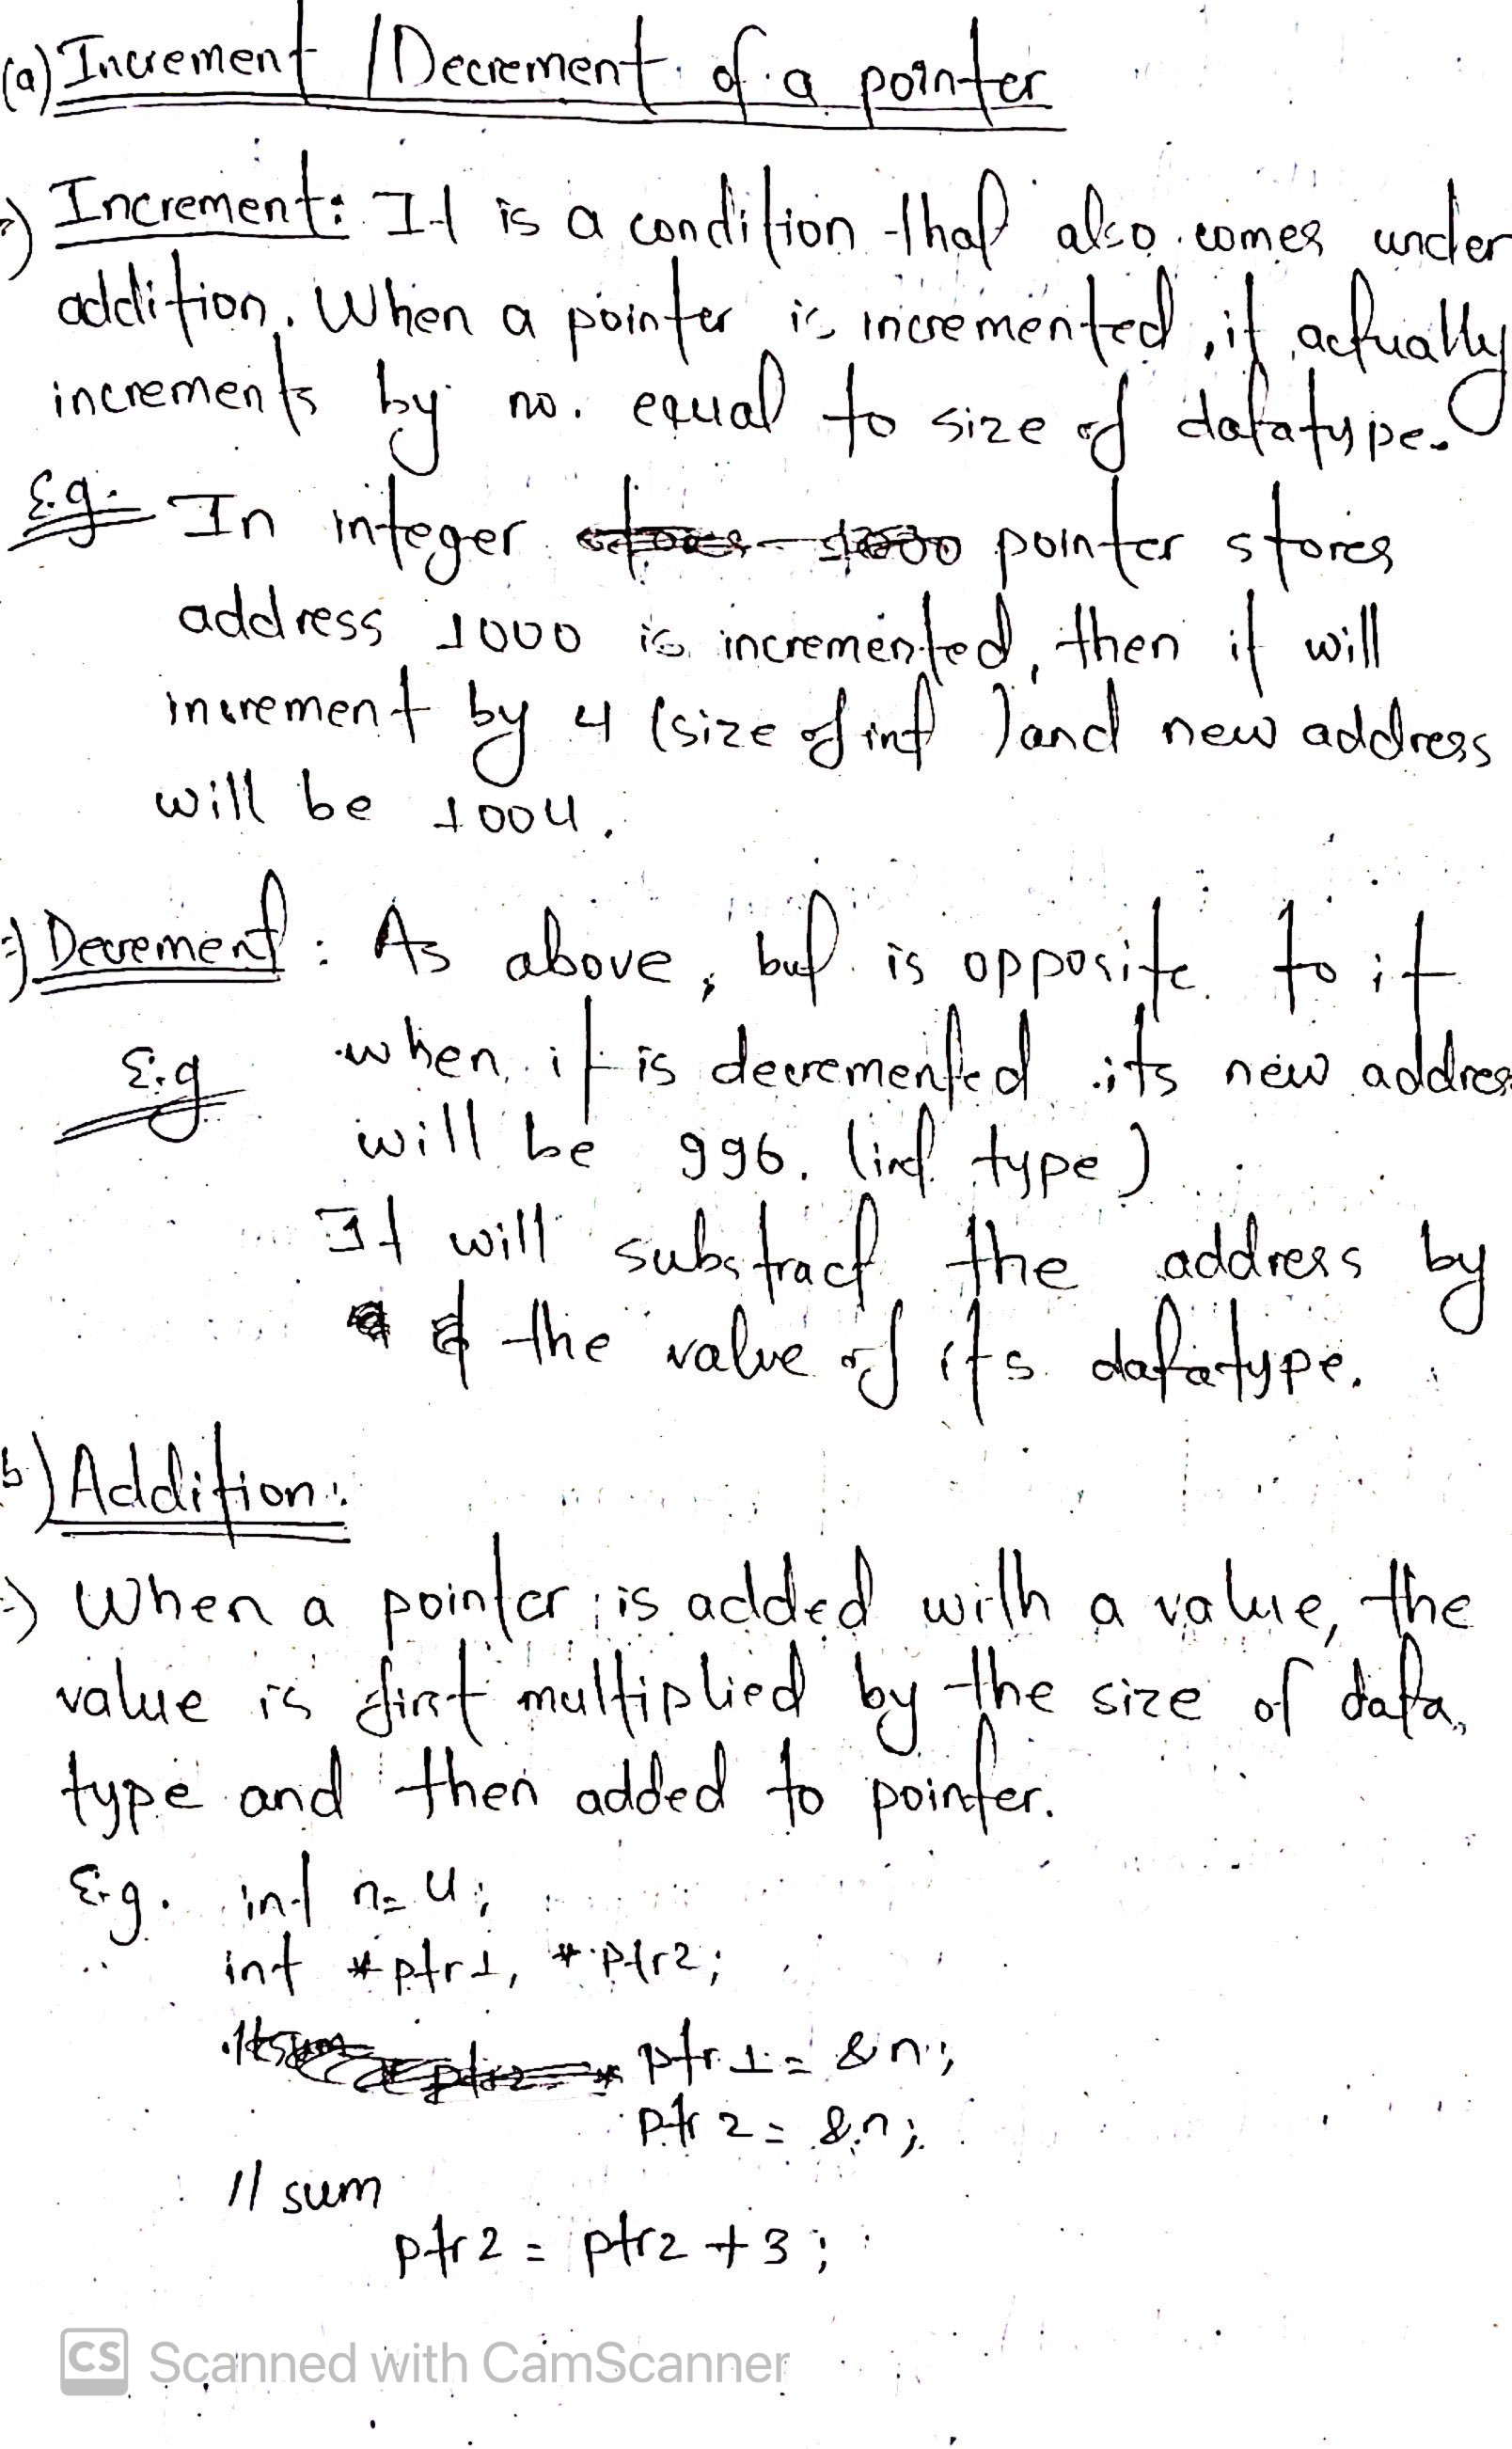 (a) Increment / Decrement of a pointer
=) Increment: It is a condition that also comes under
addition. When a pointer is incremented, it actually
increments by no. equal to size of datatype.
E.g. In integer pointer stores
address 1000 is incremented, then it will
increment by 4 (size of int ) and new address
will be 1004.
=) Decrement : As above, but is opposite to it
E.g when it is decremented its new address
will be 996. (int type)
It will substract the address by
the value of its datatype.
b) Addition:
=) When a pointer is added with a value, the
value is first multiplied by the size of data
type and then added to pointer.
E.g. int n= 4;
int *ptr1, *ptr2;
ptr1 = &n;
ptr2 = &n;
// sum
ptr2 = ptr2 + 3;
CS Scanned with CamScanner